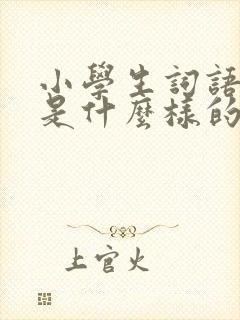 小學生詞語
是什麼樣的
上官火